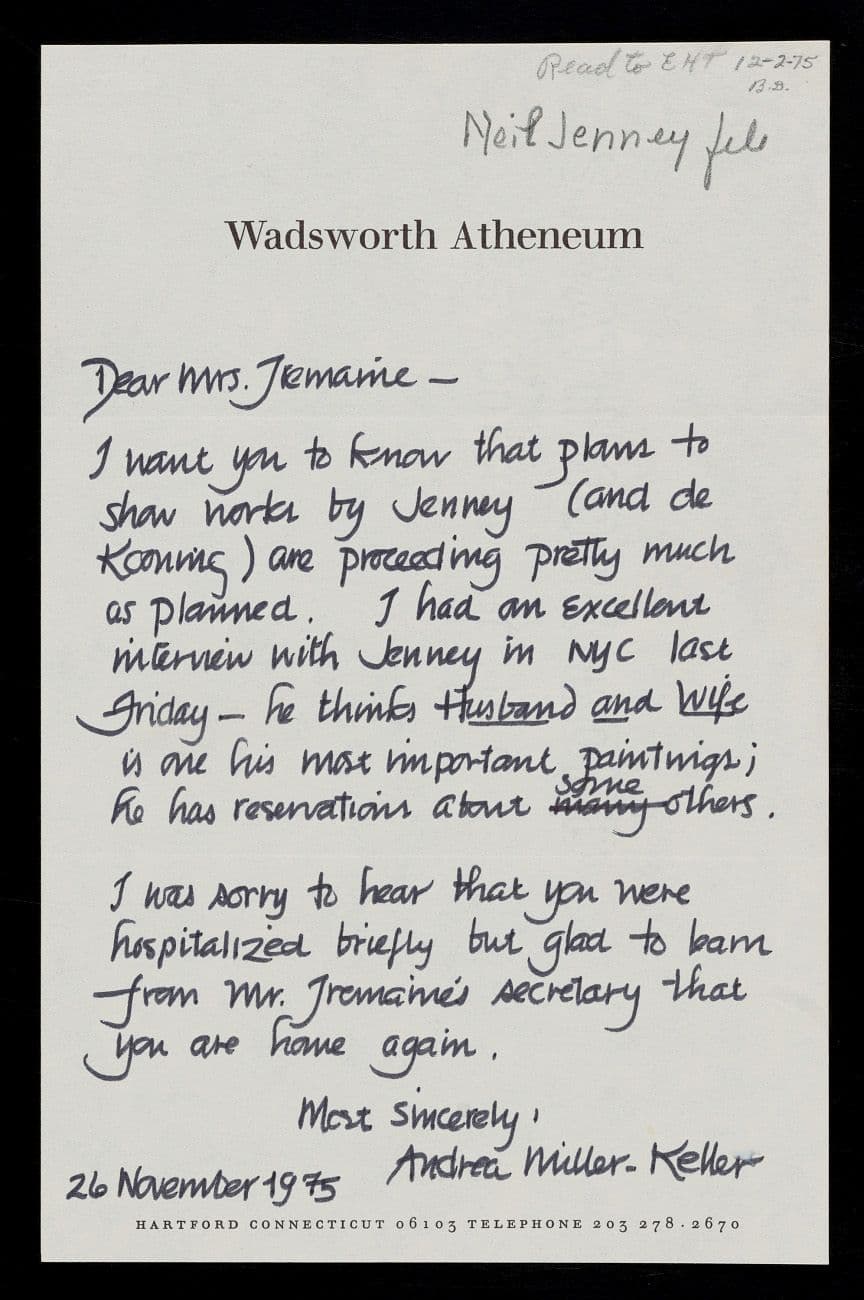 Read to EHT 12-2-75
B.D.
Neil Jenney file
Wadsworth Atheneum
Dear Mrs. Tremaine —
I want you to know that plans to
show works by Jenney (and de
Kooning) are proceeding pretty much
as planned. I had an excellent
interview with Jenney in NYC last
Friday — he thinks Husband and Wife
is one his most important paintings;
he has reservations about many some others.
I was sorry to hear that you were
hospitalized briefly but glad to learn
from Mr. Tremaine's secretary that
you are home again.
Most Sincerely,
Andrea Miller-Keller
26 November 1975
HARTFORD CONNECTICUT 06103 TELEPHONE 203 278·2670